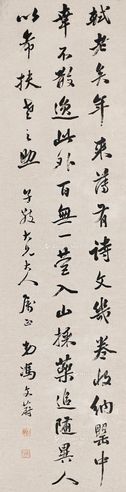 軾老矣年來薄有詩文幾卷收納甖中
幸不散逸此外百無一營入山採藥追隨異人
以希扶老之助 子敬大兄大人屬正 馮文蔚